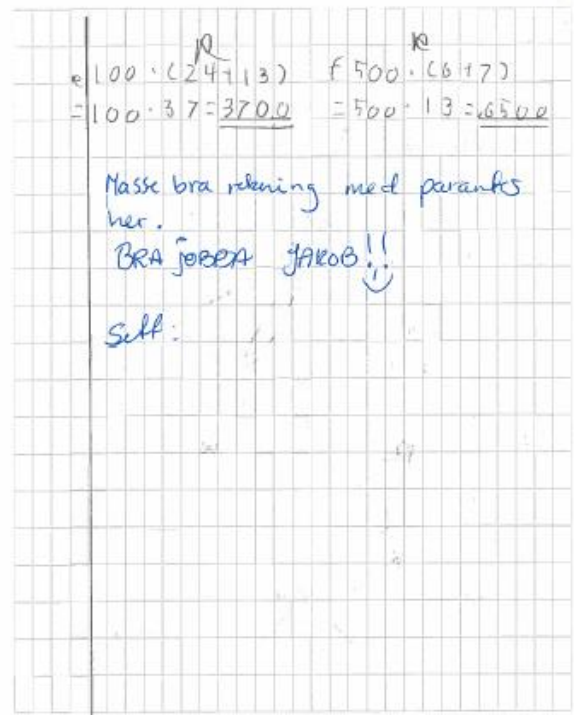 R R
e 100 · (24+13) f 500 · (6+7)
= 100 · 37 = 3700 = 500 · 13 = 6500
Masse bra rekning med parantes
her.
BRA JOBBA JAKOB!!
Sett: